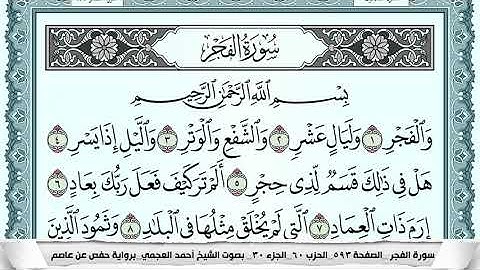 سُورَةُ الفَجْرِ
بِسْمِ اللَّهِ الرَّحْمَٰنِ الرَّحِيمِ
وَالْفَجْرِ ١ وَلَيَالٍ عَشْرٍ ٢ وَالشَّفْعِ وَالْوَتْرِ ٣ وَاللَّيْلِ إِذَا يَسْرِ ٤
هَلْ فِي ذَٰلِكَ قَسَمٌ لِّذِي حِجْرٍ ٥ أَلَمْ تَرَ كَيْفَ فَعَلَ رَبُّكَ بِعَادٍ ٦
إِرَمَ ذَاتِ الْعِمَادِ ٧ الَّتِي لَمْ يُخْلَقْ مِثْلُهَا فِي الْبِلَادِ ٨ وَثَمُودَ الَّذِينَ
سورة الفجر الصفحة ٥٩٣ الحزب ٦٠ الجزء ٣٠ بصوت الشيخ أحمد العجمي برواية حفص عن عاصم